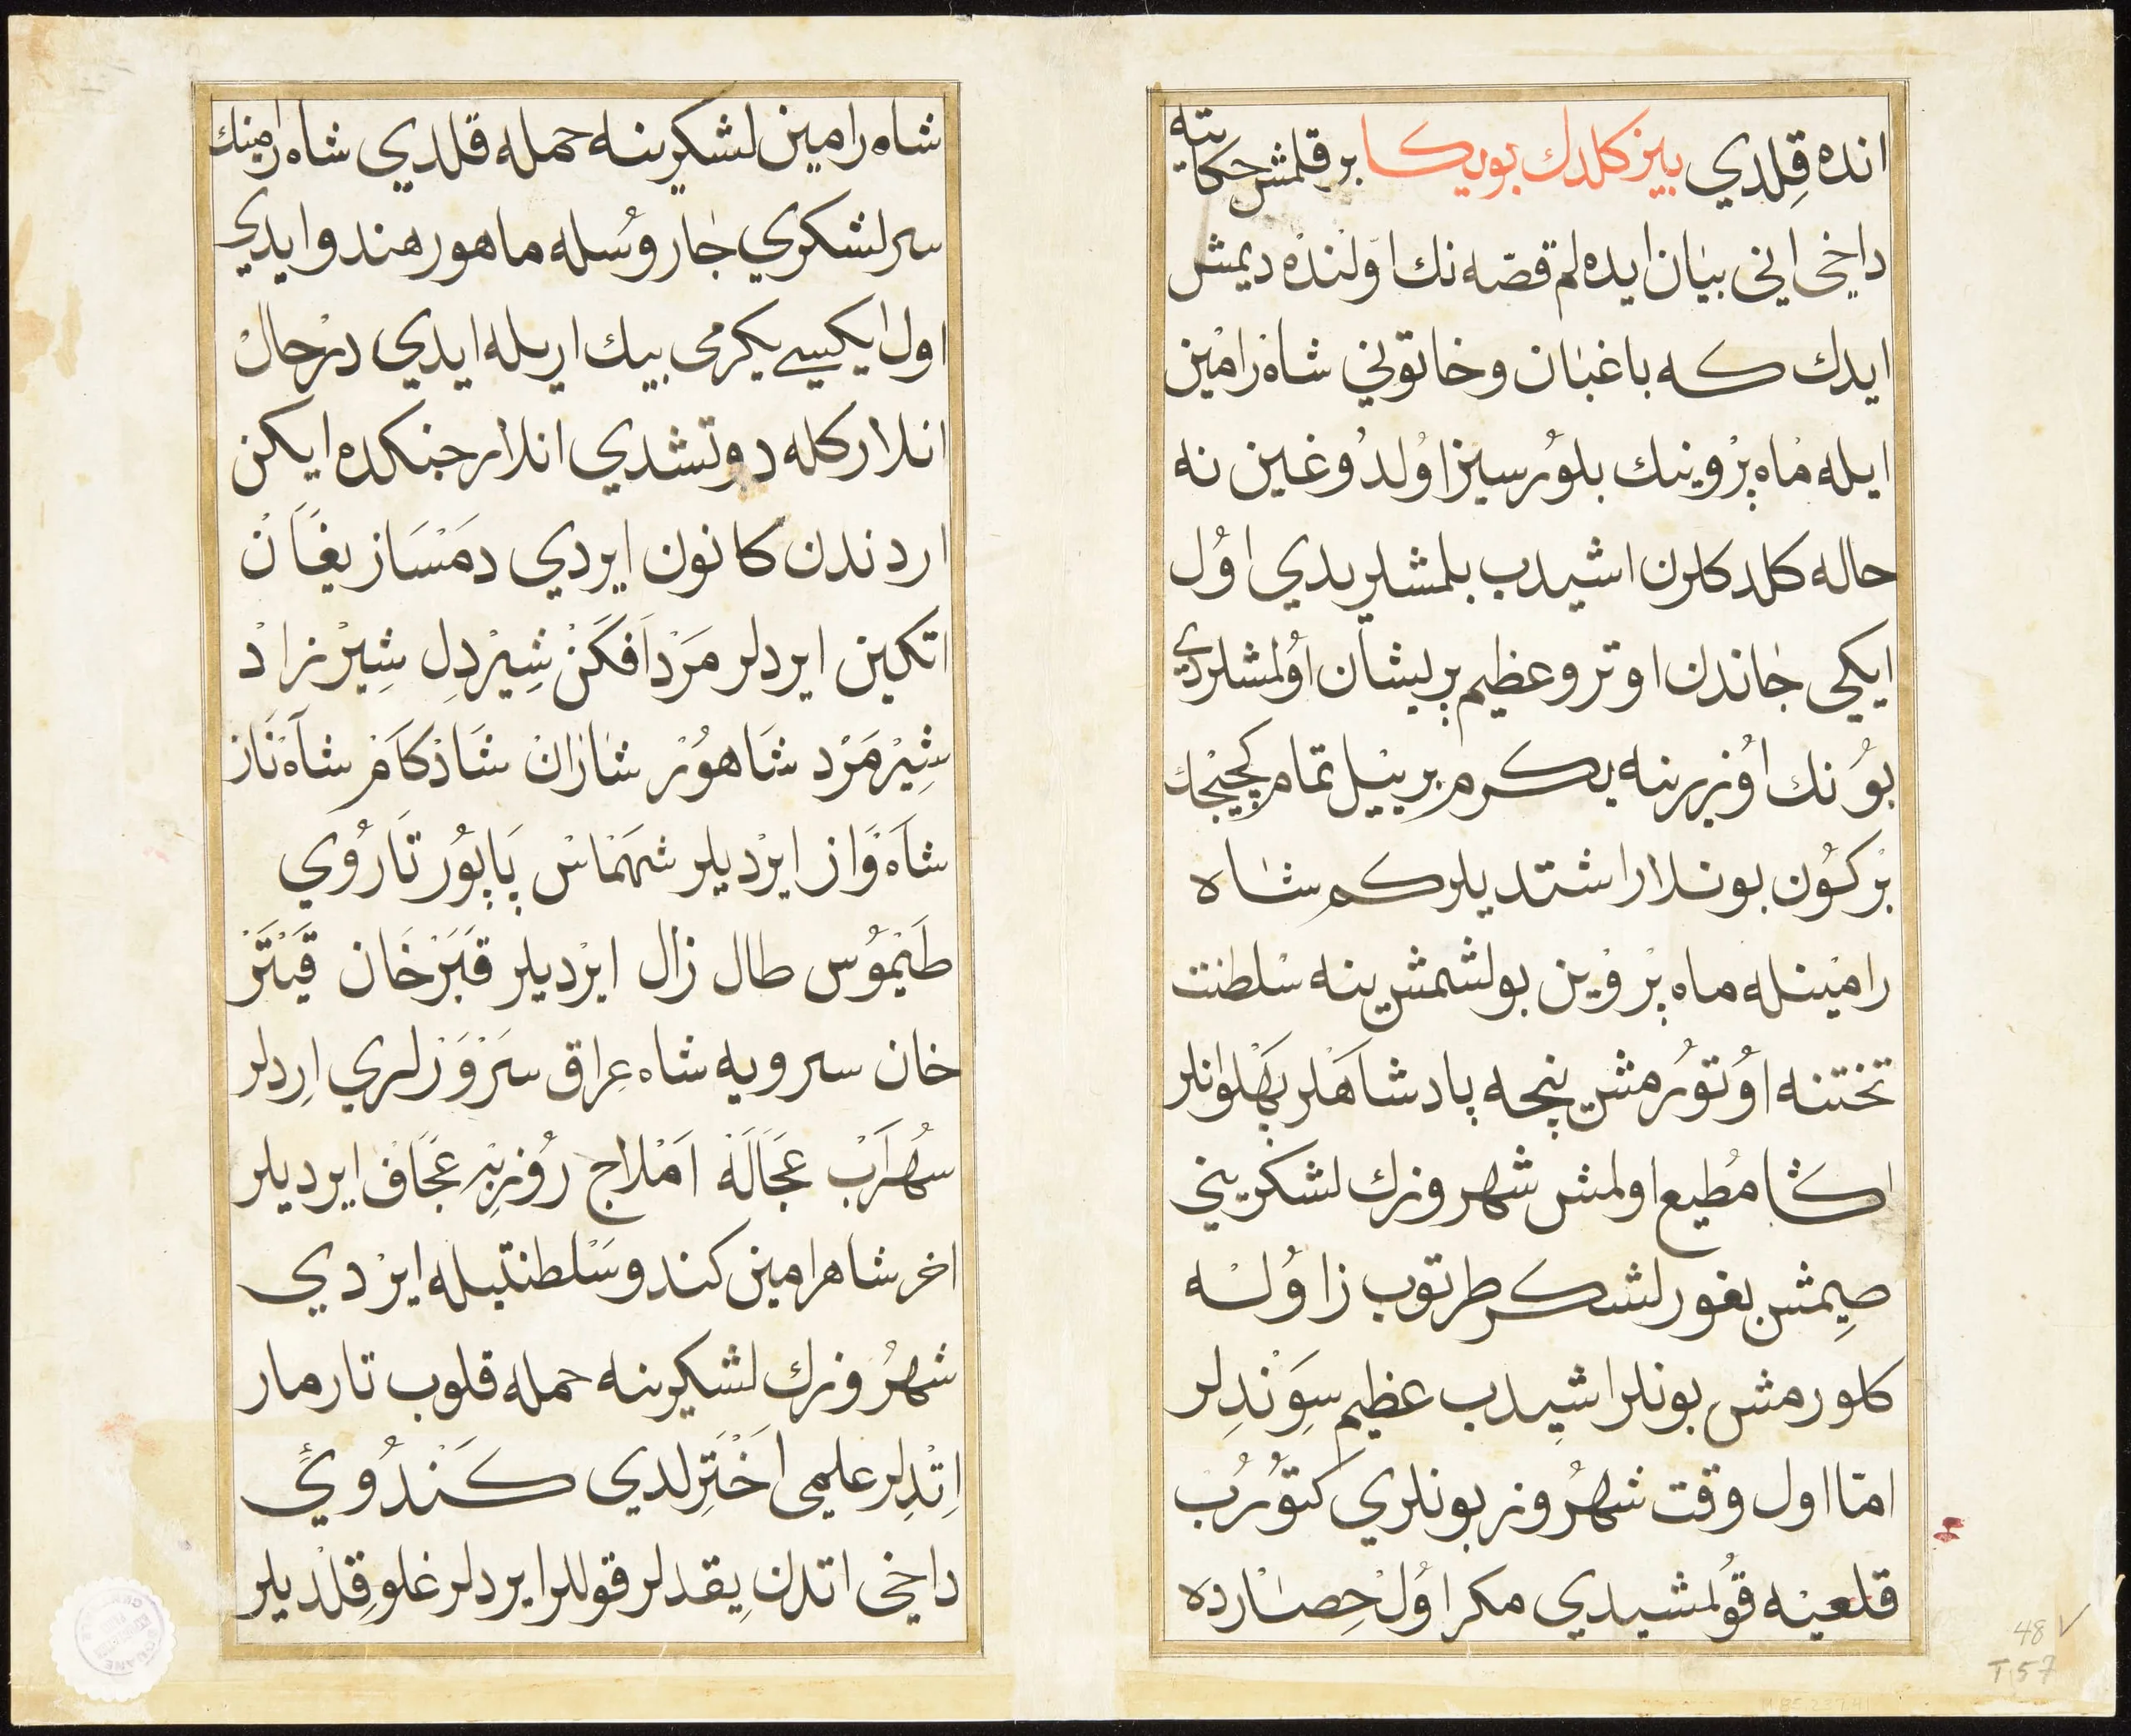 انده قِلدي بيز كلدك بويكا بر قلمش حكايته
داخي اني بيان ايده لم قصّه نك اوّلنده ديمش
ايدك كه باغبان وخاتوني شاه رامين
ايله ماه پروينك بلورسيز اولدوغين نه
حاله كلدكلرن اشيدب بلمشلريدي اوُل
ايكي جاندن اوترو عظيم پريشان اولمشلردي
بوُنك اوُزرينه يكرم بر ييل تمام كچينجك
بر كوُن بونلار اشتديلر كم شاه
رامينله ماه پروين بولشمش ينه سلطنت
تختنه اوُتوُرمش نيجه پادشاهلر پهلوانلر
اكا مُطيع اولمش شهروزك لشكريني
صِيمش بغور لشكر طرتوب زاوُلسه
كلورمش بونلر اشيدب عظيم سِوَندِلر
امّا اول وقت شهرُوز بونلري كتوُرُب
قلعيه قوُلمشيدي مكر اوُل حِصارده
شاه رامين لشكرينه حمله قلدي شاه رامينك
سرلشكري جاروُسله ماهور هندو ايدي
اول ايكيسي يكرمى بيك اريله ايدي درحال
انلار كله دوتشدي انلار جنكده ايكن
اردندن كانون ايردي دمَسَاز يغَان
اتكين ايردلر مَردافكَن شِيردِل شِيرزاد
شِيرمَرد شَاهوُر شاران شَادكَام شآه نَاز
شَاه وَاز ايرديلر شهمَاس پَاپوُر تَارُوي
طَيموُس طال زال ايرديلر قَبَرخَان قَيتَر
خان سرويه شاه عِراق سَروَرلري اِردلر
سُهرَاب عَجَالَه اَملاج رُوزبِه عَجَاف ايرديلر
اخر شاه رامين كندو سَلطنتيله ايردي
شهرُوزك لشكرينه حمله قلوب تارمار
اِتدِلر علمي اَختَرلدي كَندُويي
داخي اتدن يِقدلر قوللر ايردلر غلو قِلديلر
48 ✓
T 57